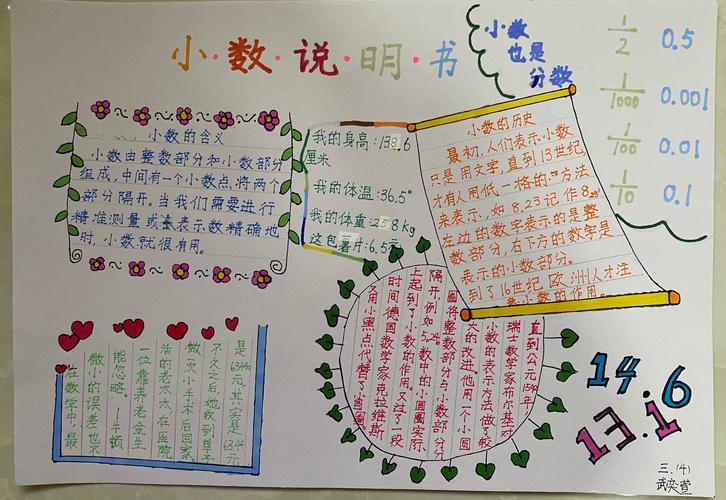 小·数·说·明·书
小数
也是
分数
1/2 0.5
1/1000 0.001
1/100 0.01
1/10 0.1
小数的含义
小数由整数部分和小数部分
组成,中间有一个小数点,将两个
部分隔开。当我们需要进行
精准测量或表示数精确地
时,小数就很有用。
我的身高:138.6
厘米
我的体温:36.5°
我的体重:25.8Kg
这包薯片:6.5元
小数的历史
最初,人们表示小数
只是用文字,直到13世纪
才有人用低一格的方法
来表示,如8.23记作8
左边的数字表示的是整
数部分,右下方的数字是
表示的小数部分。
到了16世纪欧洲人才注
小数的作用。
直到公元
瑞士数学家布尔基对
小数的表示方法做了较
大的改进,他用一个小圆
圈将整数部分与小数部分分
隔开,例如:5。24数中的小圆圈实际
上起到了小数的作用。又过了一段
时间,德国数学家克拉维斯
又用小黑点代替了小圆圈
在数学中,最
微小的误差也不
能忽略。
一位靠养老金生
活的老太太,在医院
做完小手术后回家
不久之后她收到
是63440元,其实是
14.6
13.1
三.(4)